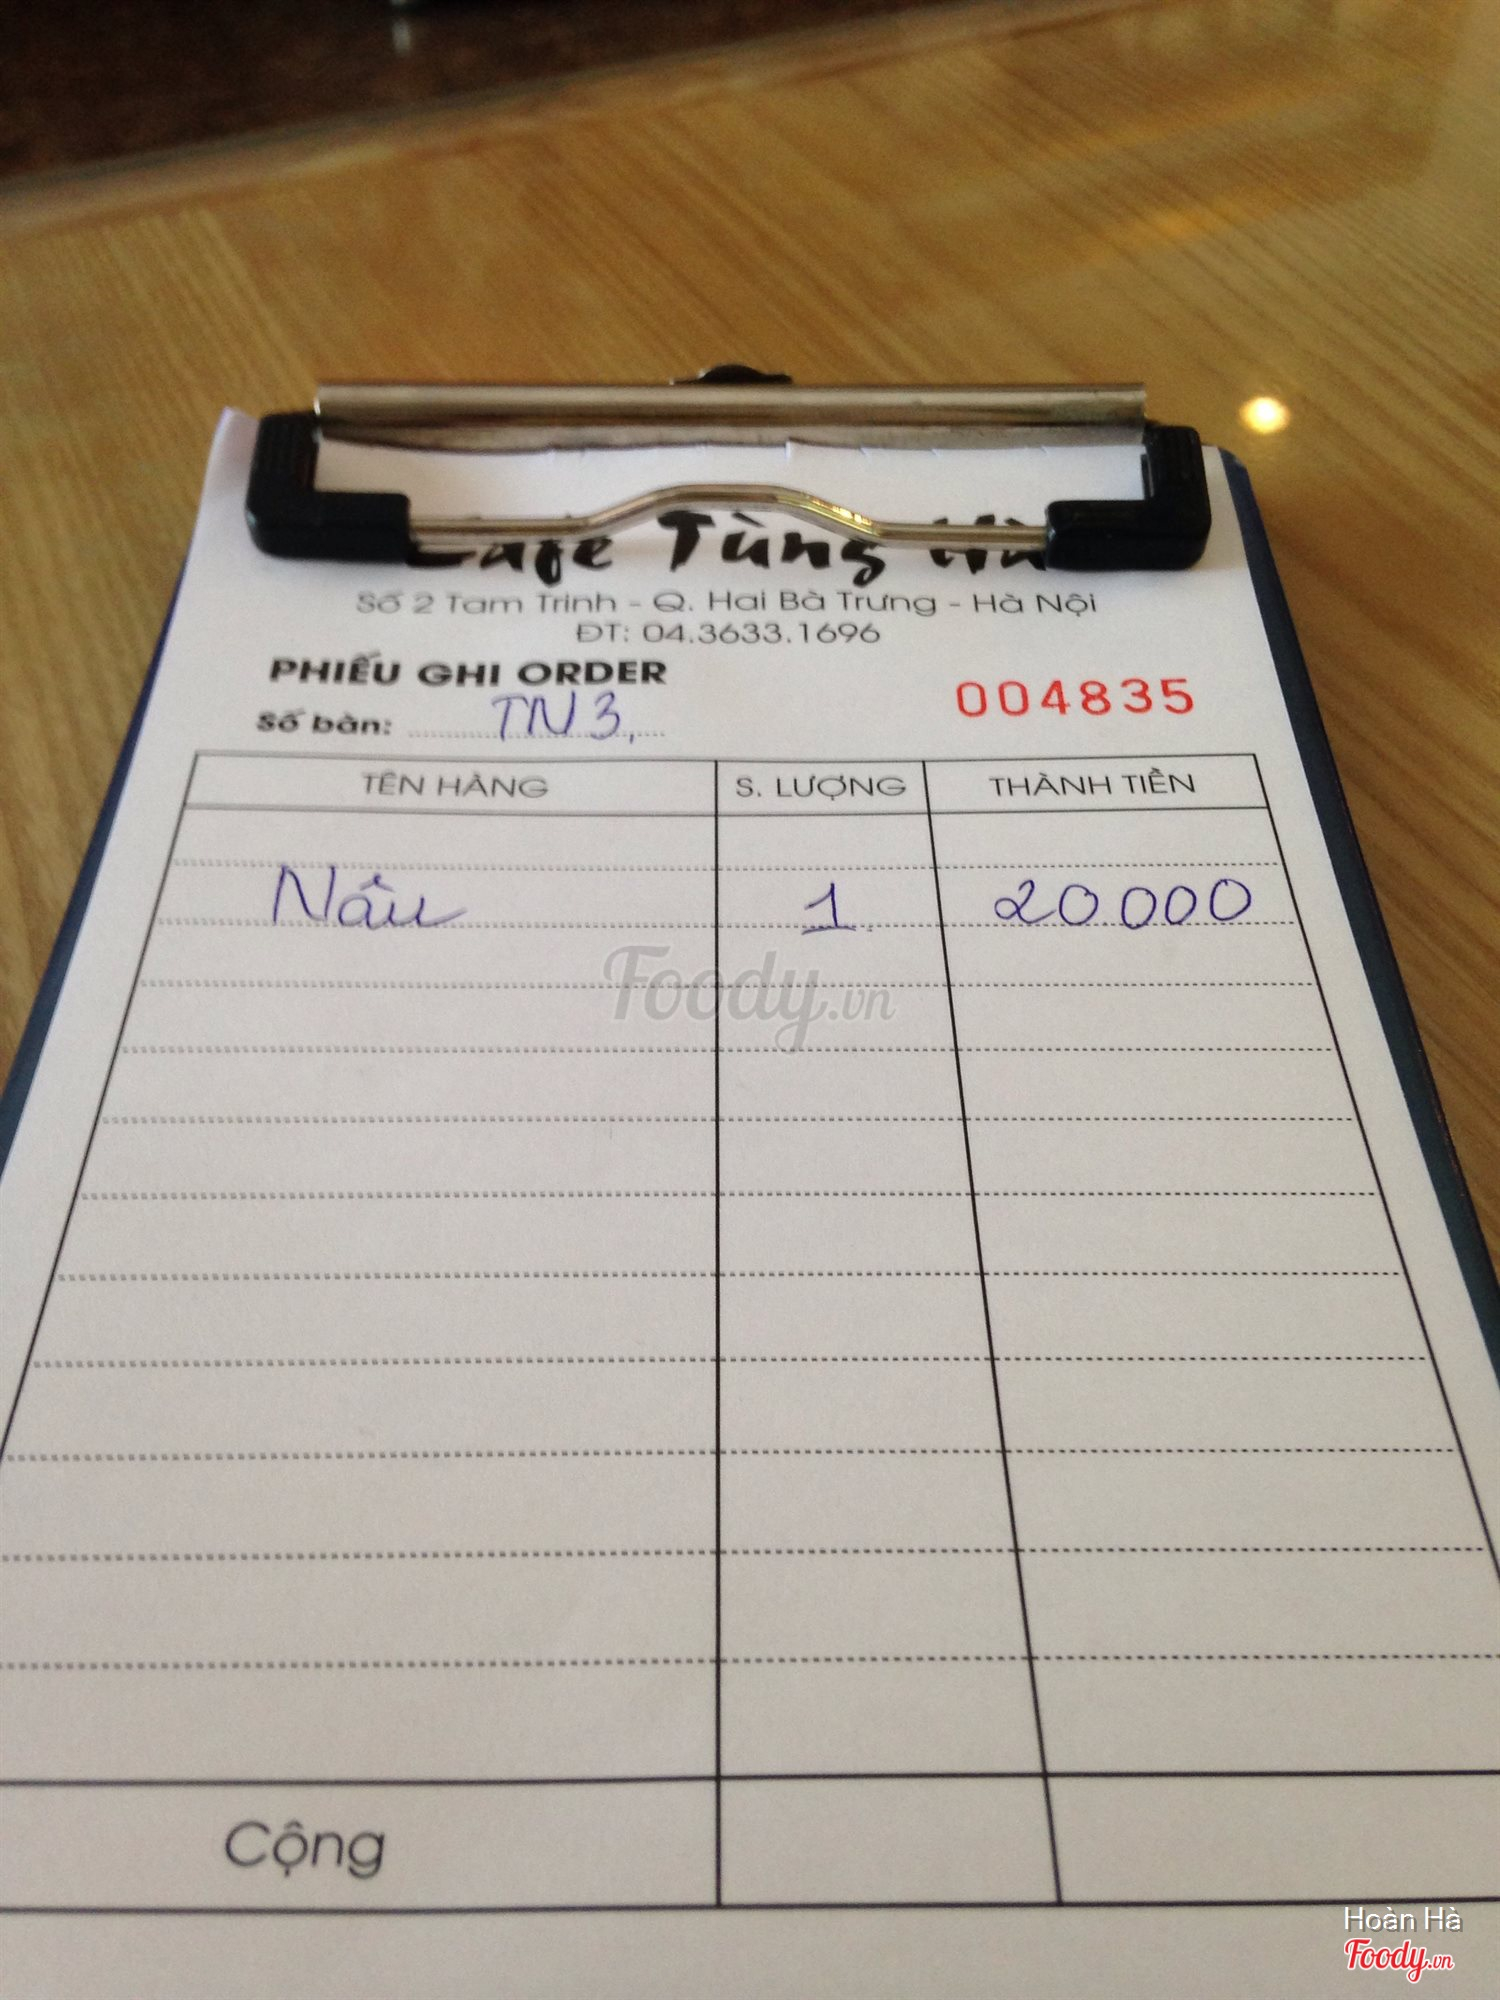 Café Tùng Hà
Số 2 Tam Trinh - Q. Hai Bà Trưng - Hà Nội
ĐT: 04.3633.1696
PHIẾU GHI ORDER
004835
Số bàn: TN3,
TÊN HÀNG S. LƯỢNG THÀNH TIỀN
Nâu 1 20.000
Foody.vn
Cộng
Hoàn Hà
Foody.vn